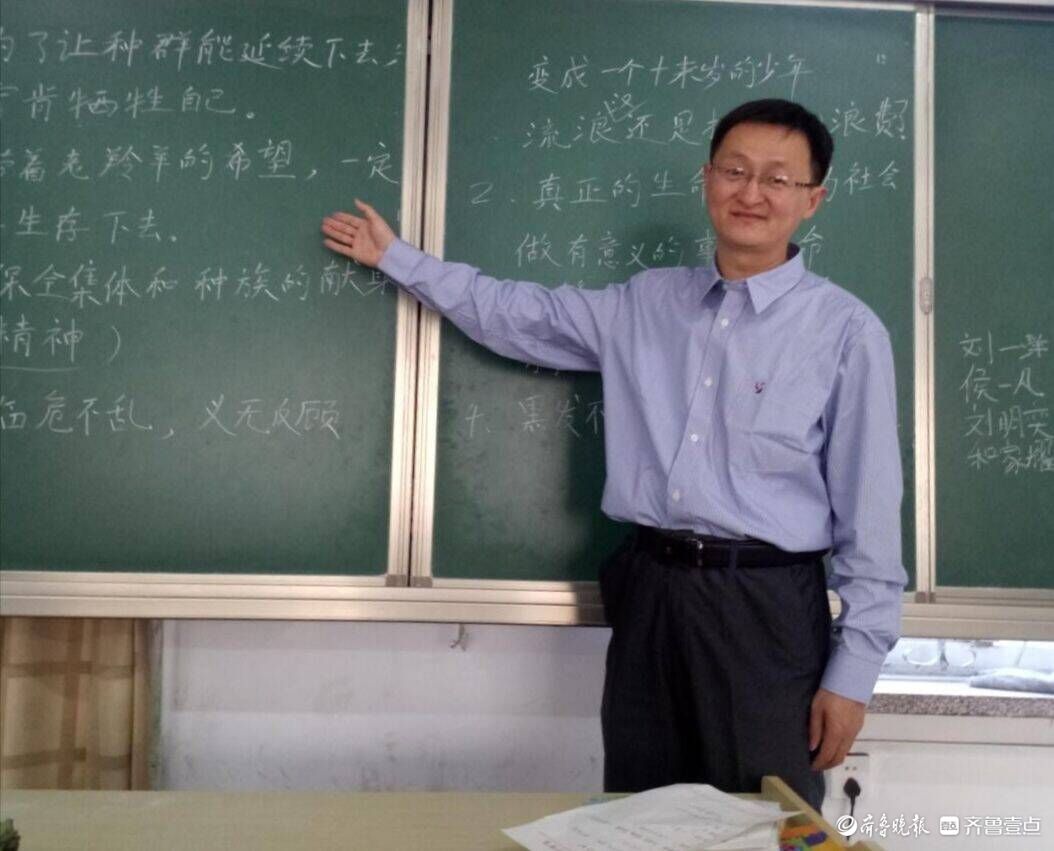 为了让种群能延续下去,
宁肯牺牲自己。
着老羚羊的希望，一定
生存下去。
保全集体和种族的献身
精神）
临危不乱，义无反顾
变成一个十来岁的少年
流浪还是 浪费
2．真正的生命 的社会
做有意义的事 命
4．黑发不
刘一
侯一凡
刘明奕
和家耀
齐鲁晚报 齐鲁壹点